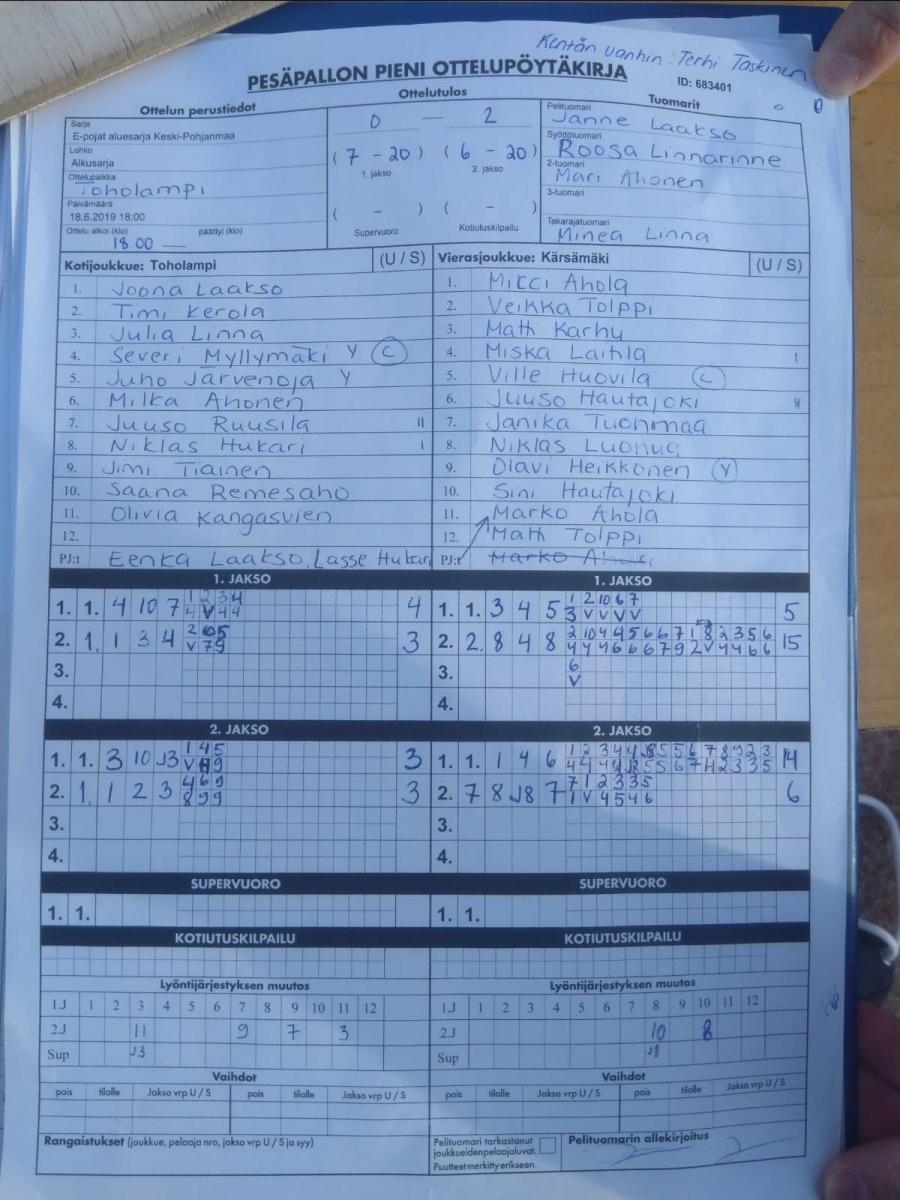 Kentän vanhin: Terhi Taskinen
PESÄPALLON PIENI OTTELUPÖYTÄKIRJA
ID: 683401
Ottelun perustiedot
Ottelutulos
Tuomarit
Sarja
E-pojat aluesarja Keski-Pohjanmaa
Lohko
Alkusarja
Ottelupaikka
Toholampi
Päivämäärä
18.6.2019 18:00
Ottelu alkoi (klo) päättyi (klo)
18 00 —
0 — 2
(7 - 20) (6 - 20)
1. jakso 2. jakso
( - ) ( - )
Supervuoro Kotiutuskilpailu
Pelituomari
Janne Laakso
Syöttötuomari
Roosa Linnarinne
2-tuomari
Mari Ahonen
3-tuomari
Takarajatuomari
Minea Linna
Kotijoukkue: Toholampi (U / S)
1. Joona Laakso
2. Timi Kerola
3. Julia Linna
4. Severi Myllymäki Y C
5. Juho Järvenoja Y
6. Milka Ahonen
7. Juuso Ruusila II
8. Niklas Hukari I
9. Jimi Tiainen
10. Saana Remesaho
11. Olivia Kangasvieri
12.
PJ:t Eerika Laakso, Lasse Hukari
Vierasjoukkue: Kärsämäki (U / S)
1. Mikci Ahola
2. Veikka Tolppi
3. Matti Karhu
4. Miska Laitila I
5. Ville Huovila C
6. Juuso Hautajoki
7. Janika Tuohimaa
8. Niklas Luonua
9. Olavi Heikkonen Y
10. Sini Hautajoki
11. Marko Ahola
12. Matti Tolppi
PJ:t
1. JAKSO
1. 1. 4 10 7 4
2. 1. 1 3 4 3
3.
4.
1. JAKSO
1. 1. 3 4 5 5
2. 2. 8 4 8 15
3.
4.
2. JAKSO
1. 1. 3 10 J3 3
2. 1. 1 2 3 3
3.
4.
2. JAKSO
1. 1. 1 4 6 14
2. 7 8 J8 7 6
3.
4.
SUPERVUORO
1. 1.
SUPERVUORO
1. 1.
KOTIUTUSKILPAILU
KOTIUTUSKILPAILU
Lyöntijärjestyksen muutos
1.J 1 2 3 4 5 6 7 8 9 10 11 12
2.J 11 9 7 3
Sup J3
Lyöntijärjestyksen muutos
1.J 1 2 3 4 5 6 7 8 9 10 11 12
2.J 10 8
Sup J8
Vaihdot
pois tilalle Jakso vrp U / S pois tilalle Jakso vrp U / S
Vaihdot
pois tilalle Jakso vrp U / S pois tilalle Jakso vrp U / S
Rangaistukset (joukkue, pelaaja nro, jakso vrp U / S ja syy)
Pelituomari tarkastanut
joukkueiden pelaajaluvat.
Puutteet merkitty erikseen.
Pelituomarin allekirjoitus